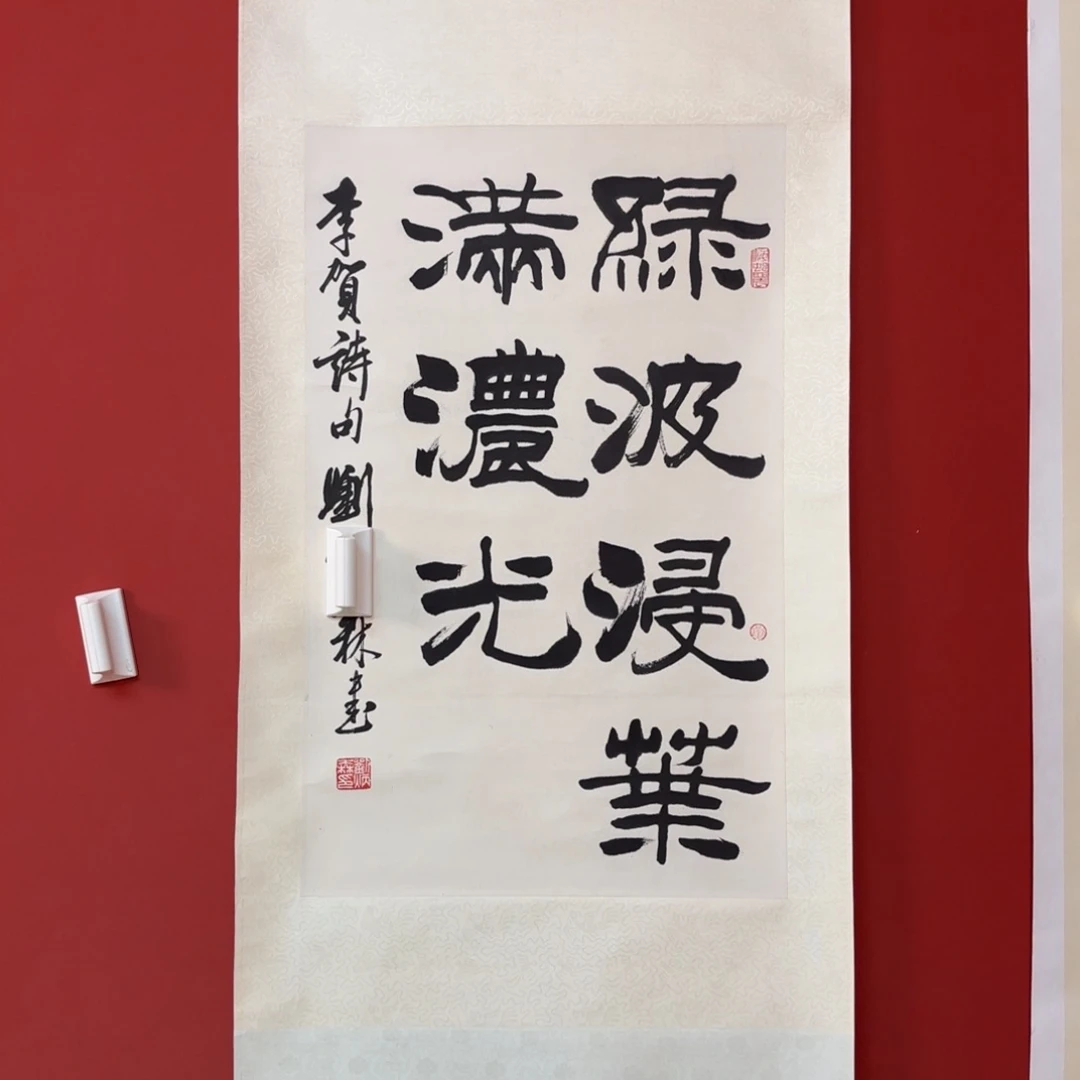 緑波浸葉
满濃光
李賀詩句 劉 林書